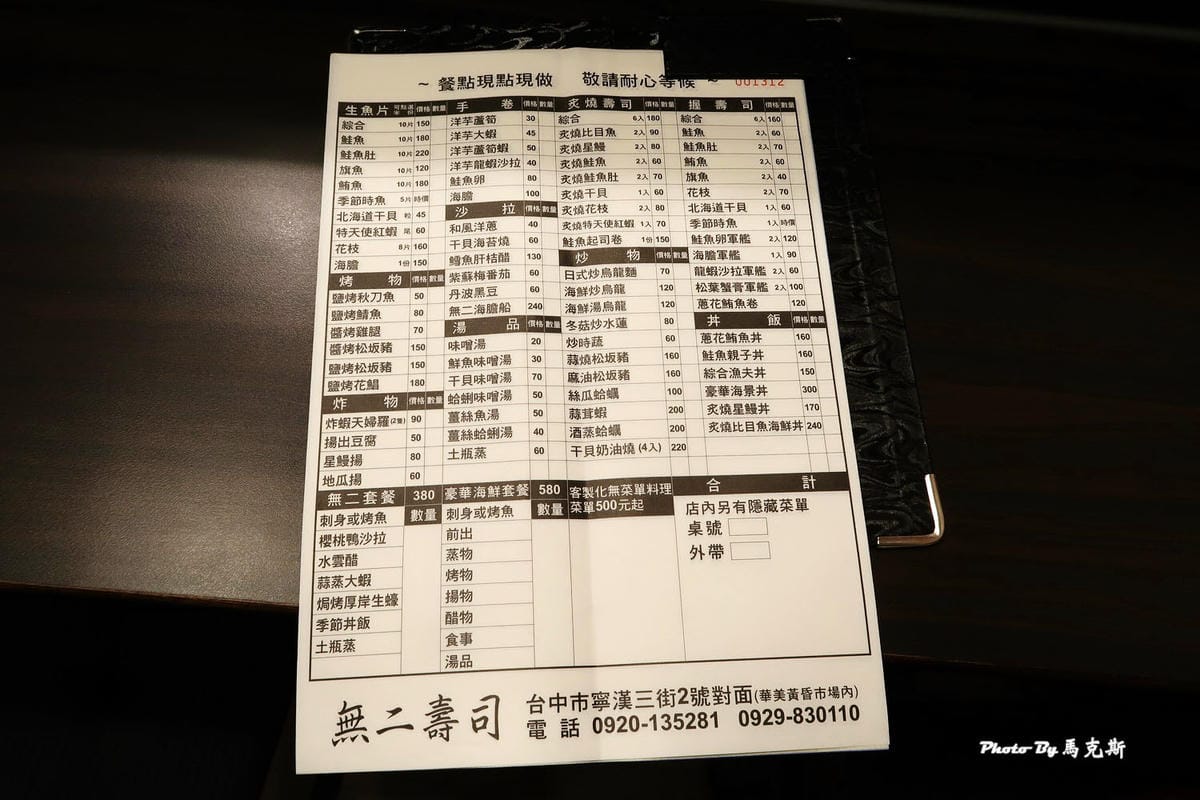 ~ 餐點現點現做 敬請耐心等候 ~ 001312
生魚片 可點選半份 價格 數量
綜合 10片 150
鮭魚 10片 180
鮭魚肚 10片 220
旗魚 10片 120
鮪魚 10片 180
季節時魚 5片 時價
北海道干貝 粒 45
特天使紅蝦 尾 60
花枝 8片 160
海膽 1份 150
烤物 價格 數量
鹽烤秋刀魚 50
鹽烤鯖魚 80
醬烤雞腿 70
醬烤松坂豬 150
鹽烤松坂豬 150
鹽烤花鯧 180
炸物 價格 數量
炸蝦天婦羅(2隻) 90
揚出豆腐 50
星鰻揚 80
地瓜揚 60
手卷 價格 數量
洋芋蘆筍 30
洋芋大蝦 45
洋芋蘆筍蝦 50
洋芋龍蝦沙拉 40
鮭魚卵 80
海膽 100
沙拉 價格 數量
和風洋蔥 40
干貝海苔燒 60
鱈魚肝桔醋 130
紫蘇梅番茄 60
丹波黑豆 60
無二海膽船 240
湯品 價格 數量
味噌湯 20
鮮魚味噌湯 30
干貝味噌湯 70
蛤蜊味噌湯 50
薑絲魚湯 50
薑絲蛤蜊湯 40
土瓶蒸 60
炙燒壽司 價格 數量
綜合 6入 180
炙燒比目魚 2入 90
炙燒星鰻 2入 80
炙燒鮭魚 2入 60
炙燒鮭魚肚 2入 70
炙燒干貝 1入 60
炙燒花枝 2入 80
炙燒特天使紅蝦 1入 70
鮭魚起司卷 1份 150
炒物 價格 數量
日式炒烏龍麵 70
海鮮炒烏龍 120
海鮮湯烏龍 120
冬菇炒水蓮 80
炒時蔬 60
蒜燒松坂豬 160
麻油松坂豬 160
絲瓜蛤蠣 100
蒜茸蝦 200
酒蒸蛤蠣 200
干貝奶油燒(4入) 220
握壽司 價格 數量
綜合 6入 160
鮭魚 2入 60
鮭魚肚 2入 70
鮪魚 2入 60
旗魚 2入 40
花枝 2入 70
北海道干貝 1入 60
季節時魚 1入 時價
鮭魚卵軍艦 2入 120
海膽軍艦 1入 90
龍蝦沙拉軍艦 2入 60
松葉蟹膏軍艦 2入 100
蔥花鮪魚卷 120
丼飯 價格 數量
蔥花鮪魚丼 160
鮭魚親子丼 160
綜合漁夫丼 150
豪華海景丼 300
炙燒星鰻丼 170
炙燒比目魚海鮮丼 240
無二套餐 380
數量
刺身或烤魚
櫻桃鴨沙拉
水雲醋
蒜蒸大蝦
焗烤厚岸生蠔
季節丼飯
土瓶蒸
豪華海鮮套餐 580
數量
刺身或烤魚
前出
蒸物
烤物
揚物
醋物
食事
湯品
客製化無菜單料理
菜單500元起
合計
店內另有隱藏菜單
桌號
外帶
無二壽司
台中市寧漢三街2號對面(華美黃昏市場內)
電話 0920-135281 0929-830110
Photo By 馬克斯